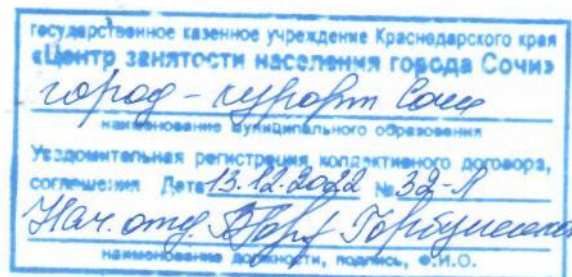 государственное казенное учреждение Краснодарского края
«Центр занятости населения города Сочи»
город-курорт Сочи
наименование муниципального образования
Уведомительная регистрация коллективного договора,
соглашения Дата 13.12.2022 № 32-Л
Нач. отд.
наименование должности, подпись, Ф.И.О.